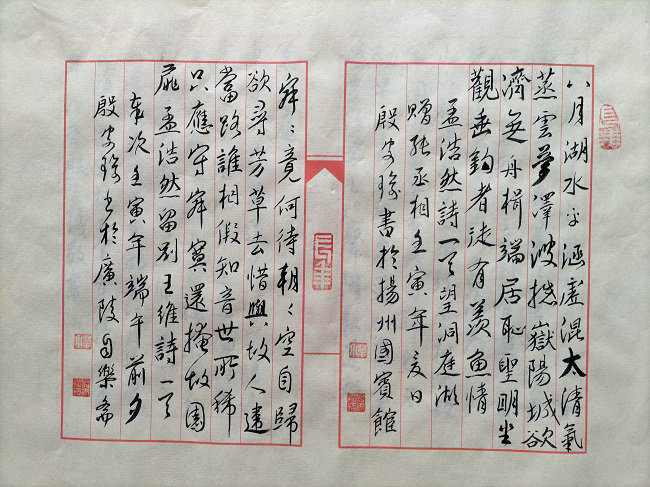 八月湖水平涵虛混太清氣
蒸雲夢澤波撼嶽陽城欲
濟無舟楫端居恥聖明坐
觀垂釣者徒有羨魚情
孟浩然詩一首望洞庭湖
贈張丞相壬寅年夏日
殷書於揚州國賓館
寂〻竟何待朝〻空自歸
欲尋芳草去惜與故人違
當路誰相假知音世所稀
只應守寂寞還掩故園
扉孟浩然留別王維詩一首
歲次壬寅年端午前夕
殷書於廣陵自樂齋